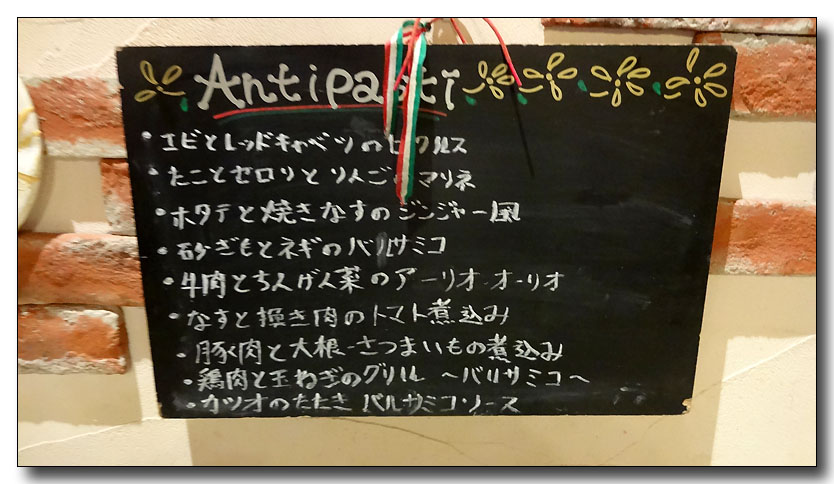 Antipasti
・エビとレッドキャベツのピクルス
・たことセロリとりんごのマリネ
・ホタテと焼きなすのジンジャー風
・砂ぎもとネギのバルサミコ
・牛肉とちんげん菜のアーリオ・オーリオ
・なすと挽き肉のトマト煮込み
・豚肉と大根・さつまいもの煮込み
・鶏肉と玉ねぎのグリル 〜バルサミコ〜
・カツオのたたき バルサミコ・ソース